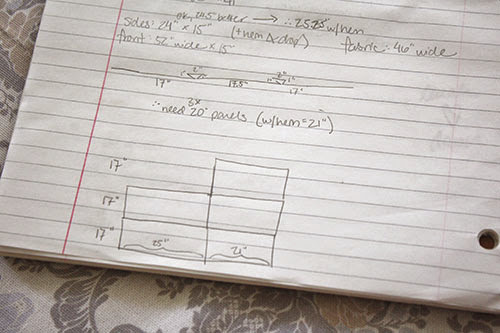 ok, 24.5 better → ∴ 25.25" w/hem
sides: 24" x 15" (+hem & drop) fabric: 46" wide
front: 52" wide x 15"
2" 2"
1" 1"
17" 17.5" 17"
3x
∴ need 20" panels (w/hem = 21")
17"
17"
17"
25" 21"